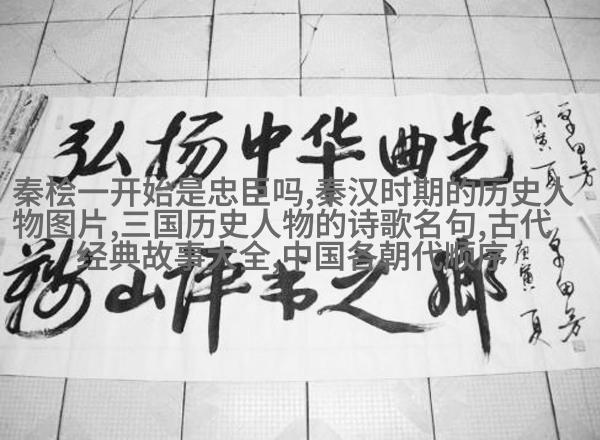 弘扬中华曲艺
庚寅夏 单田芳
秦桧一开始是忠臣吗,秦汉时期的历史人
物图片,三国历史人物的诗歌名句,古代
经典故事大全,中国各朝代顺序
鞍山评书之鄉
庚寅夏 单田芳